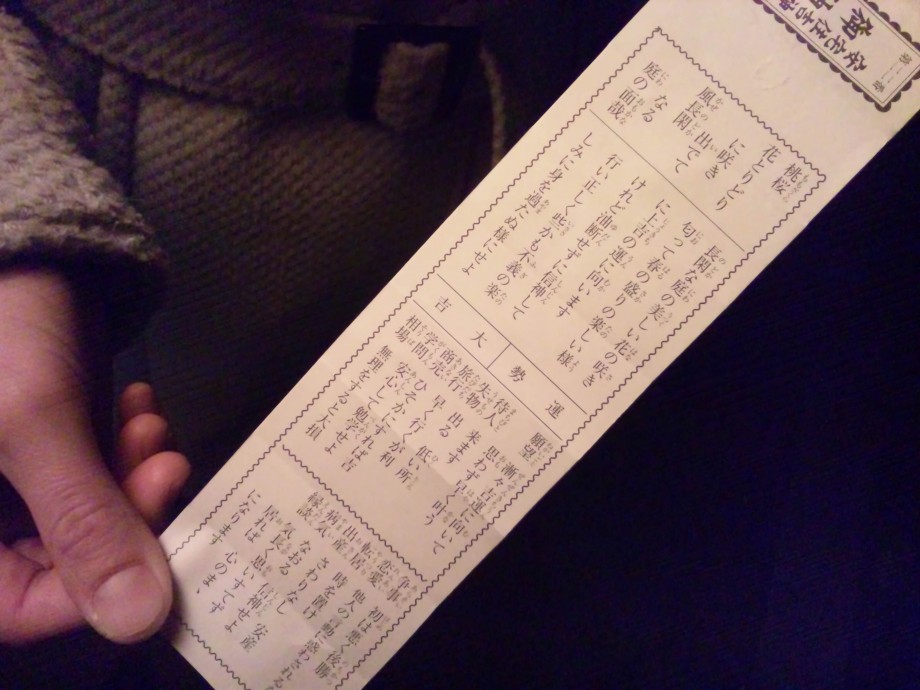 桃桜
花とりどり
に咲き
出でて
風長閑
なる
庭の面哉
長閑な庭の美しい花の咲き
匂って春の盛りの楽しい様
に上吉の運に向います
けれど油断せずに信神して
行い正しく些かも不義の楽
しみに身を過たぬ様にせよ
運勢
大吉
願望 漸々吉運に向いて
思わず早く叶う
待人 来ます
失物 出る 低い所
旅行 早く行くが利
商売 ひそかにすれば吉
学問 安心して勉学せよ
相場 無理をすると大損
争事 初は悪く後勝
恋愛 他人の言動に惑わされ
時を置け
転居 さわりなし
出産 安産
病気 なおる 信神せよ
縁談 気長く思いすてず
居れば心のまゝ
になります